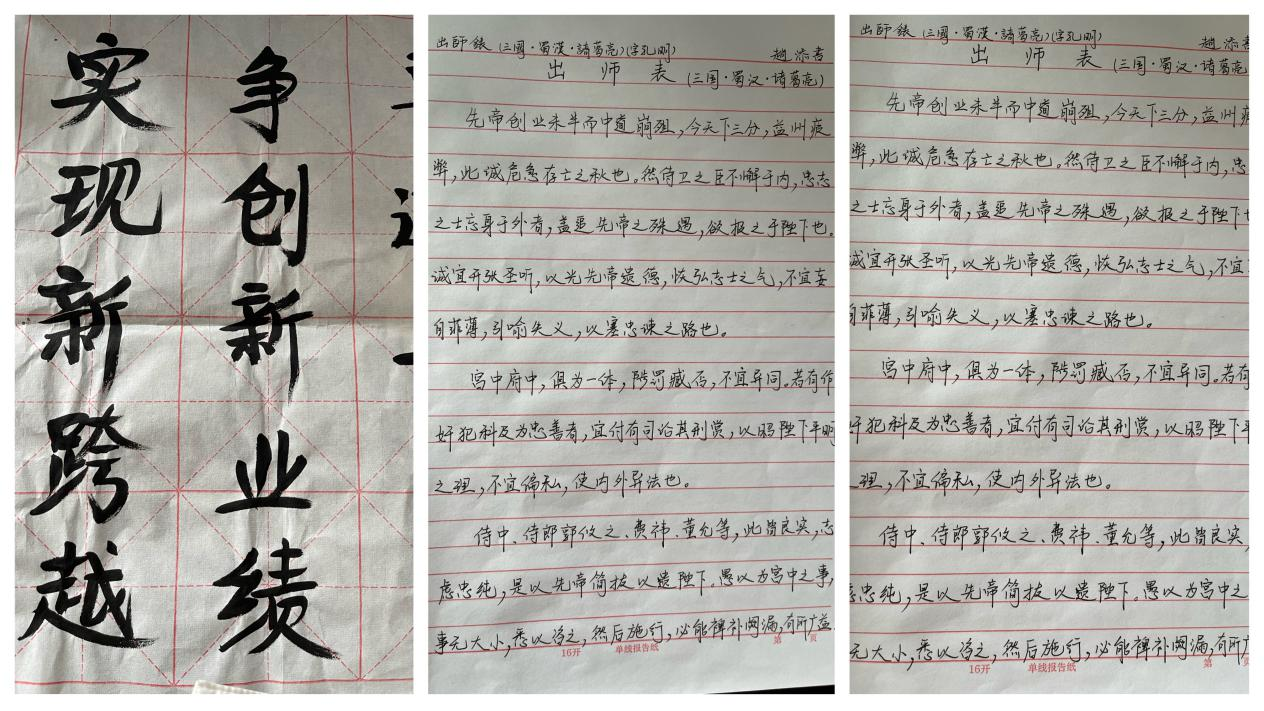 争创新业绩
实现新跨越
出師錶(三國·蜀漢·諸葛亮)(字孔明) 趙添書
出师表(三国·蜀汉·诸葛亮)
先帝创业未半而中道崩殂,今天下三分,益州疲
弊,此诚危急存亡之秋也。然侍卫之臣不懈于内,忠志
之士忘身于外者,盖追先帝之殊遇,欲报之于陛下也。
诚宜开张圣听,以光先帝遗德,恢弘志士之气,不宜妄
自菲薄,引喻失义,以塞忠谏之路也。
宫中府中,俱为一体,陟罚臧否,不宜异同。若有作
奸犯科及为忠善者,宜付有司论其刑赏,以昭陛下平明
之理,不宜偏私,使内外异法也。
侍中、侍郎郭攸之、费祎、董允等,此皆良实,志
虑忠纯,是以先帝简拔以遗陛下。愚以为宫中之事,
事无大小,悉以咨之,然后施行,必能裨补阙漏,有所广益
16开 单线报告纸 第 页
出師錶(三國·蜀漢·諸葛亮)(字孔明) 趙添書
出师表(三国·蜀汉·诸葛亮
先帝创业未半而中道崩殂,今天下三分,益州疲
弊,此诚危急存亡之秋也。然侍卫之臣不懈于内,忠
之士忘身于外者,盖追先帝之殊遇,欲报之于陛下也
诚宜开张圣听,以光先帝遗德,恢弘志士之气,不宜
自菲薄,引喻失义,以塞忠谏之路也。
宫中府中,俱为一体,陟罚臧否,不宜异同。若有
奸犯科及为忠善者,宜付有司论其刑赏,以昭陛下平
之理,不宜偏私,使内外异法也。
侍中、侍郎郭攸之、费祎、董允等,此皆良实,
虑忠纯,是以先帝简拔以遗陛下。愚以为宫中之
无大小,悉以咨之,然后施行,必能裨补阙漏,有所广
16开 单线报告纸 第